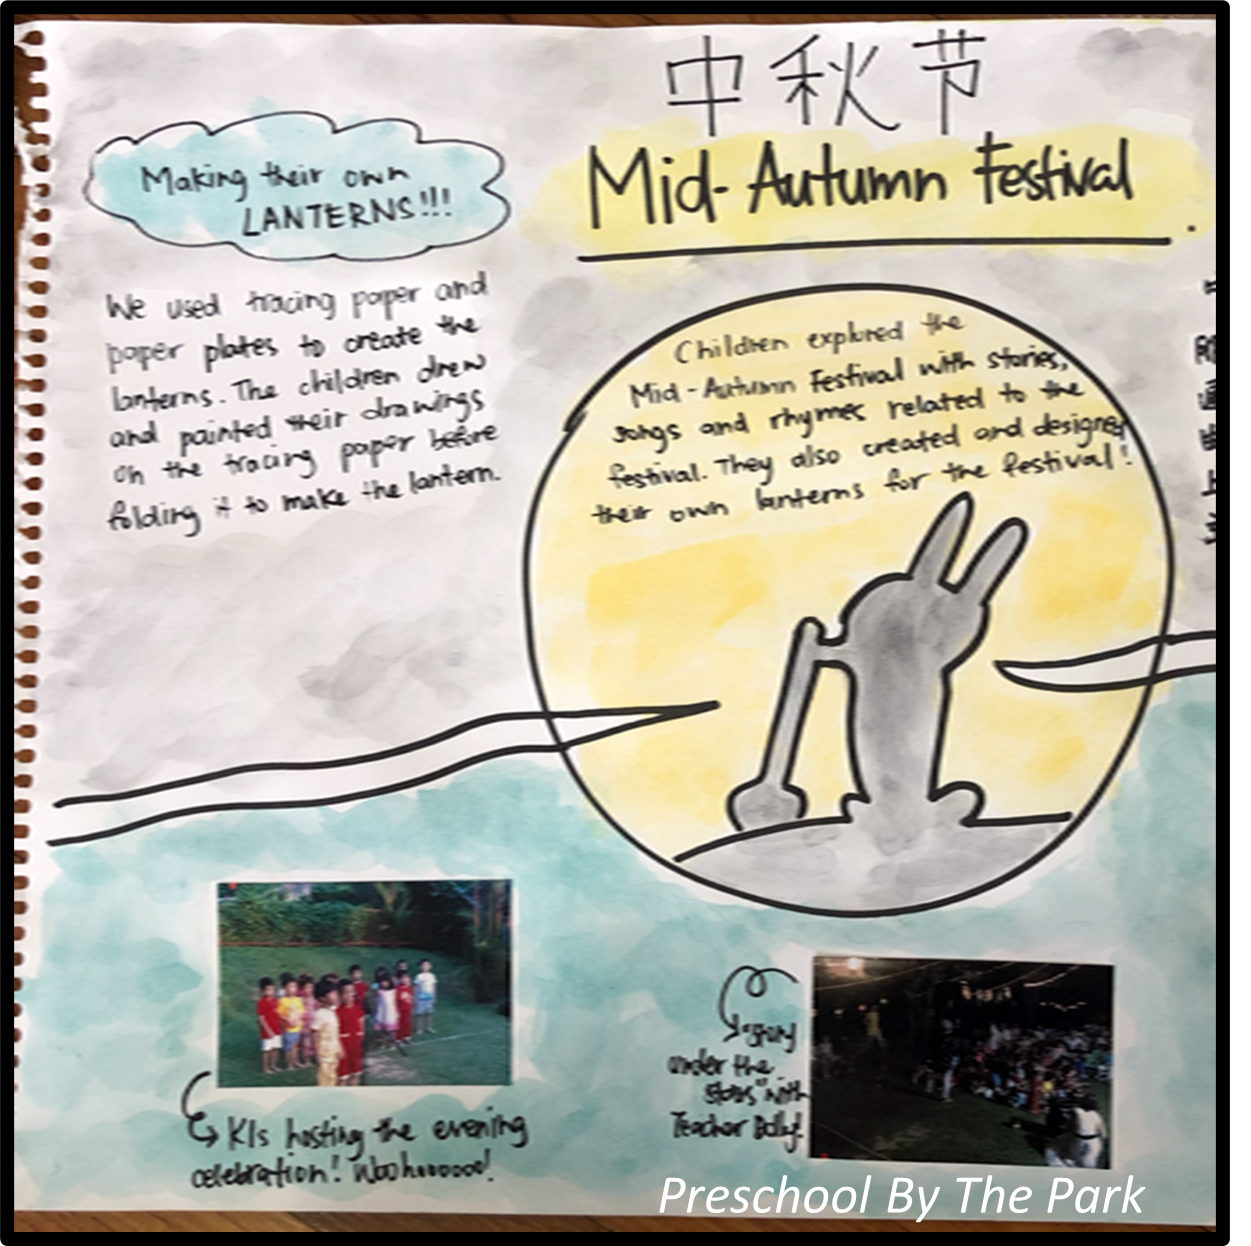 中秋节
Mid-Autumn Festival
Making their own
LANTERNS!!!
We used tracing paper and
paper plates to create the
lanterns. The children drew
and painted their drawings
on the tracing paper before
folding it to make the lantern.
Children explored the
Mid-Autumn Festival with stories,
songs and rhymes related to the
festival. They also created and designed
their own lanterns for the festival!
K1s hosting the evening
celebration! Woohooooo!
under the
stars" with
Teacher Dolly!
Preschool By The Park